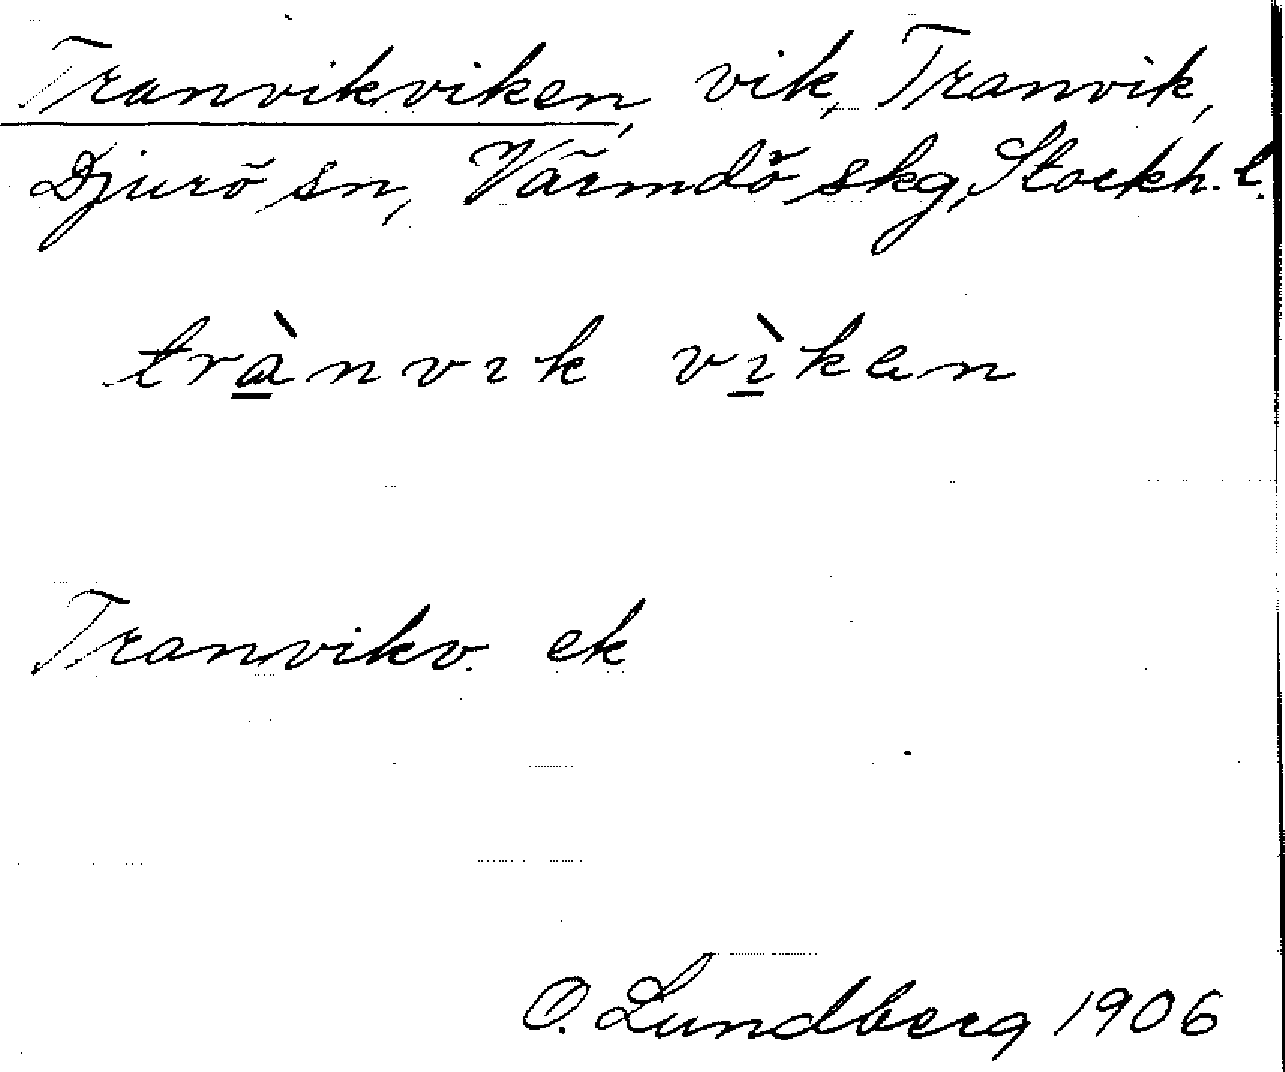 Tranvikviken, vik, Tranvik,
Djurö sn, Värmdö skg, Stockh. l.
trànvık vìken
Tranvikv. ek
O. Lundberg 1906